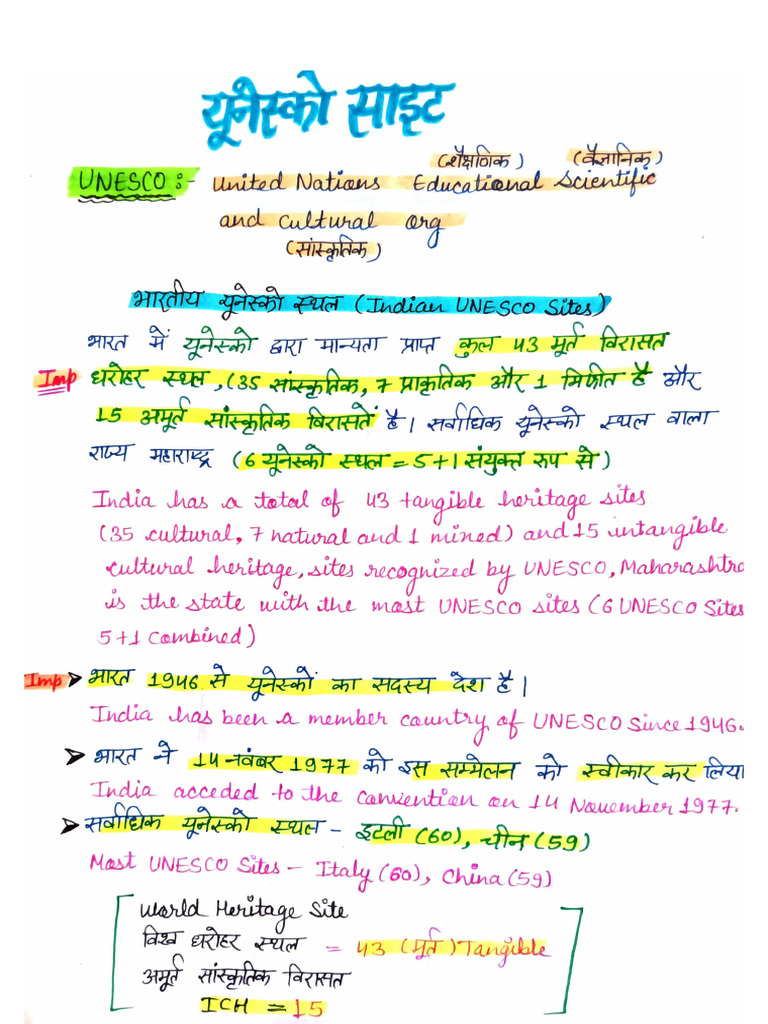 यूनेस्को साइट
(शैक्षणिक) (वैज्ञानिक)
UNESCO:- United Nations Educational Scientific
and Cultural Org
(सांस्कृतिक)
भारतीय यूनेस्को स्थल (Indian UNESCO Sites)
भारत में यूनेस्को द्वारा मान्यता प्राप्त कुल 43 मूर्त विरासत
Imp धरोहर स्थल, (35 सांस्कृतिक, 7 प्राकृतिक और 1 मिश्रीत है और
15 अमूर्त सांस्कृतिक विरासतें है। सर्वाधिक यूनेस्को स्थल वाला
राज्य महाराष्ट्र (6 यूनेस्को स्थल = 5+1 संयुक्त रुप से)
India has a total of 43 tangible heritage sites
(35 cultural, 7 natural and 1 mined) and 15 intangible
cultural heritage, sites recognized by UNESCO, Maharashtra
is the state with the most UNESCO sites (6 UNESCO Sites
5+1 Combined)
Imp ➤ भारत 1946 से यूनेस्कों का सदस्य देश है।
India has been a member country of UNESCO Since 1946.
➤ भारत ने 14 नवंबर 1977 को इस सम्मेलन को स्वीकार कर लिया
India acceded to the convention on 14 November 1977.
➤ सर्वाधिक यूनेस्को स्थल – इटली (60), चीन (59)
Most UNESCO Sites – Italy (60), China (59)
World Heritage Site
विश्व धरोहर स्थल = 43 (मूर्त) Tangible
अमूर्त सांस्कृतिक विरासत
ICH = 15